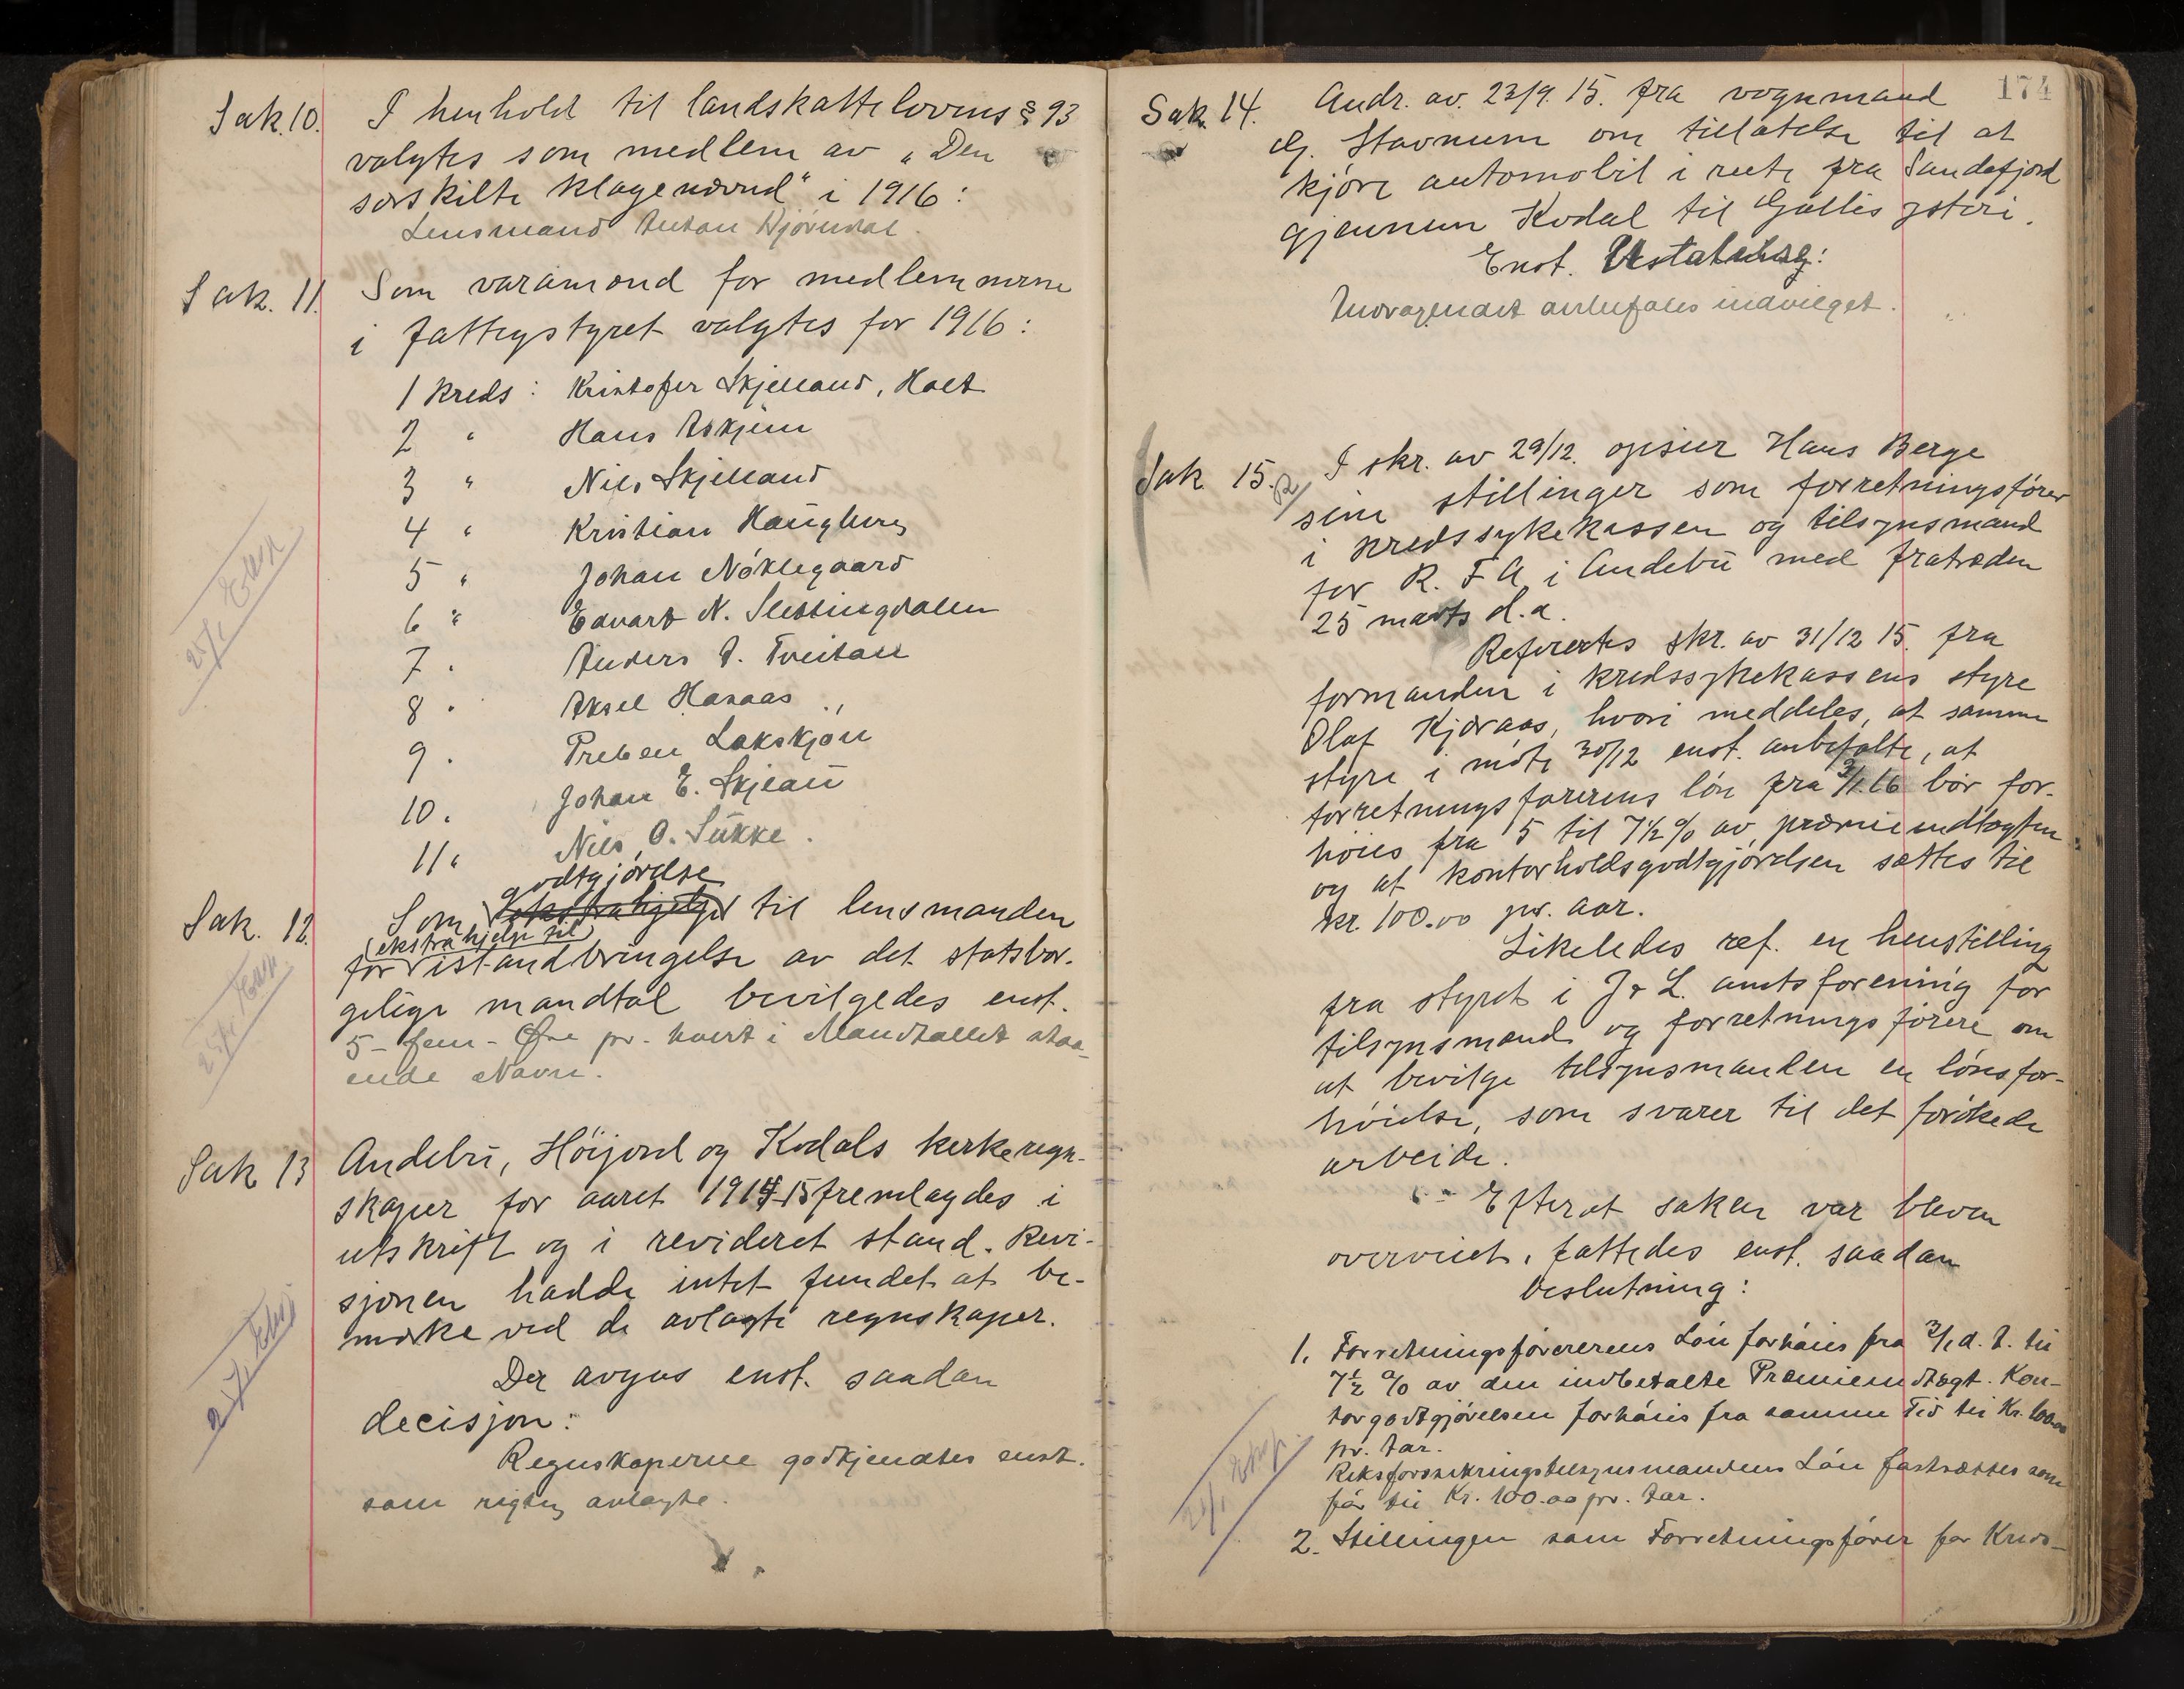 Sak. 10. I henhold til landskattelovens § 93
valgtes som medlem av "Den
særskilte klagenævnd" i 1916:
Lensmand Anton Bjørndal.
Sak. 11. Som varamænd for medlemmerne
i fattigstyret valgtes for 1916:
1 kreds: Kristofer Skjelland, Holt
2 " Hans Askjem
3 " Nils Skjelland
4 " Kristian Haugberg
5 " Johan Nøklegaard
6 " Edvart N. Slettingdalen
7 . Anders A. Tveitan
8 . Aksel Hasaas
9 . Preben Lakskjøn
10 . Johan E. Skjeau
11 " Nils O. Sukke.
godtgjørelse
Sak. 12. Som til lensmanden
ekstrahjelp til
for istandbringelse av det statsbor-
gelige mandtal bevilgedes enst.
5 - fem - Øre pr. hvert i Mandtallet staa-
ende Navn.
Sak 13 Andebu, Höijord og Kodals kirkeregn-
skaper for aaret 1914-15 fremlagdes i
utskrift og i revideret stand. Revi-
sjonen hadde intet fundet at be-
merke ved de avlagte regnskaper.
Der avgas enst. saadan
decisjon:
Regnskaperne godkjendtes enst.
som rigtig avlagte.
174
Sak. 14. Andr. av 23/9. 15. fra vognmand
Stavnum om tillatelse til at
kjöre automobil i rute fra Sandefjord
gjennem Kodal til Gallis ysteri.
Enst.
Andragendet anbefales indvilget.
Sak 15. I skr. av 29/12. opsier Hans Berge
sine stillinger som forretningsfører
i kredssykekassen og tilsynsmand
for R. F. A. i Andebu med fratræden
25 marts d.a.
Refertes skr. av 31/12 15. fra
formanden i kredssykekassens styre
Olaf Kjæraas, hvori meddeles, at samme
styre i möte 30/12 enst. anbefalte, at
forretningsførerens lön fra 3/1 16 bör for-
höies fra 5 til 7½ % av præmieindtægten
og at kontorholdsgodtgjörelsen sættes til
kr. 100.00 pr. aar.
Likeledes ref. en henstilling
fra styret i J & L. amtsforening for
tilsynsmænd og forretningsförere om
at bevilge tilsynsmanden en lönsfor-
höielse, som svarer til det forökede
arbeide.
Efterat saken var bleven
overveiet, fattedes enst. saadan
beslutning:
1. Forretningsførererens Løn forhøies fra 3/1 d. A. til
7½ % av den indbetalte Præmieindtægt. Kon-
torgodtgjørelsen forhøies fra samme Tid til Kr. 100.00
pr. Aar.
Riksforsikringstilsynsmandens Løn fastsættes som
før til Kr. 100.00 pr. Aar.
2. Stillingen som Forretningsfører for Kreds-